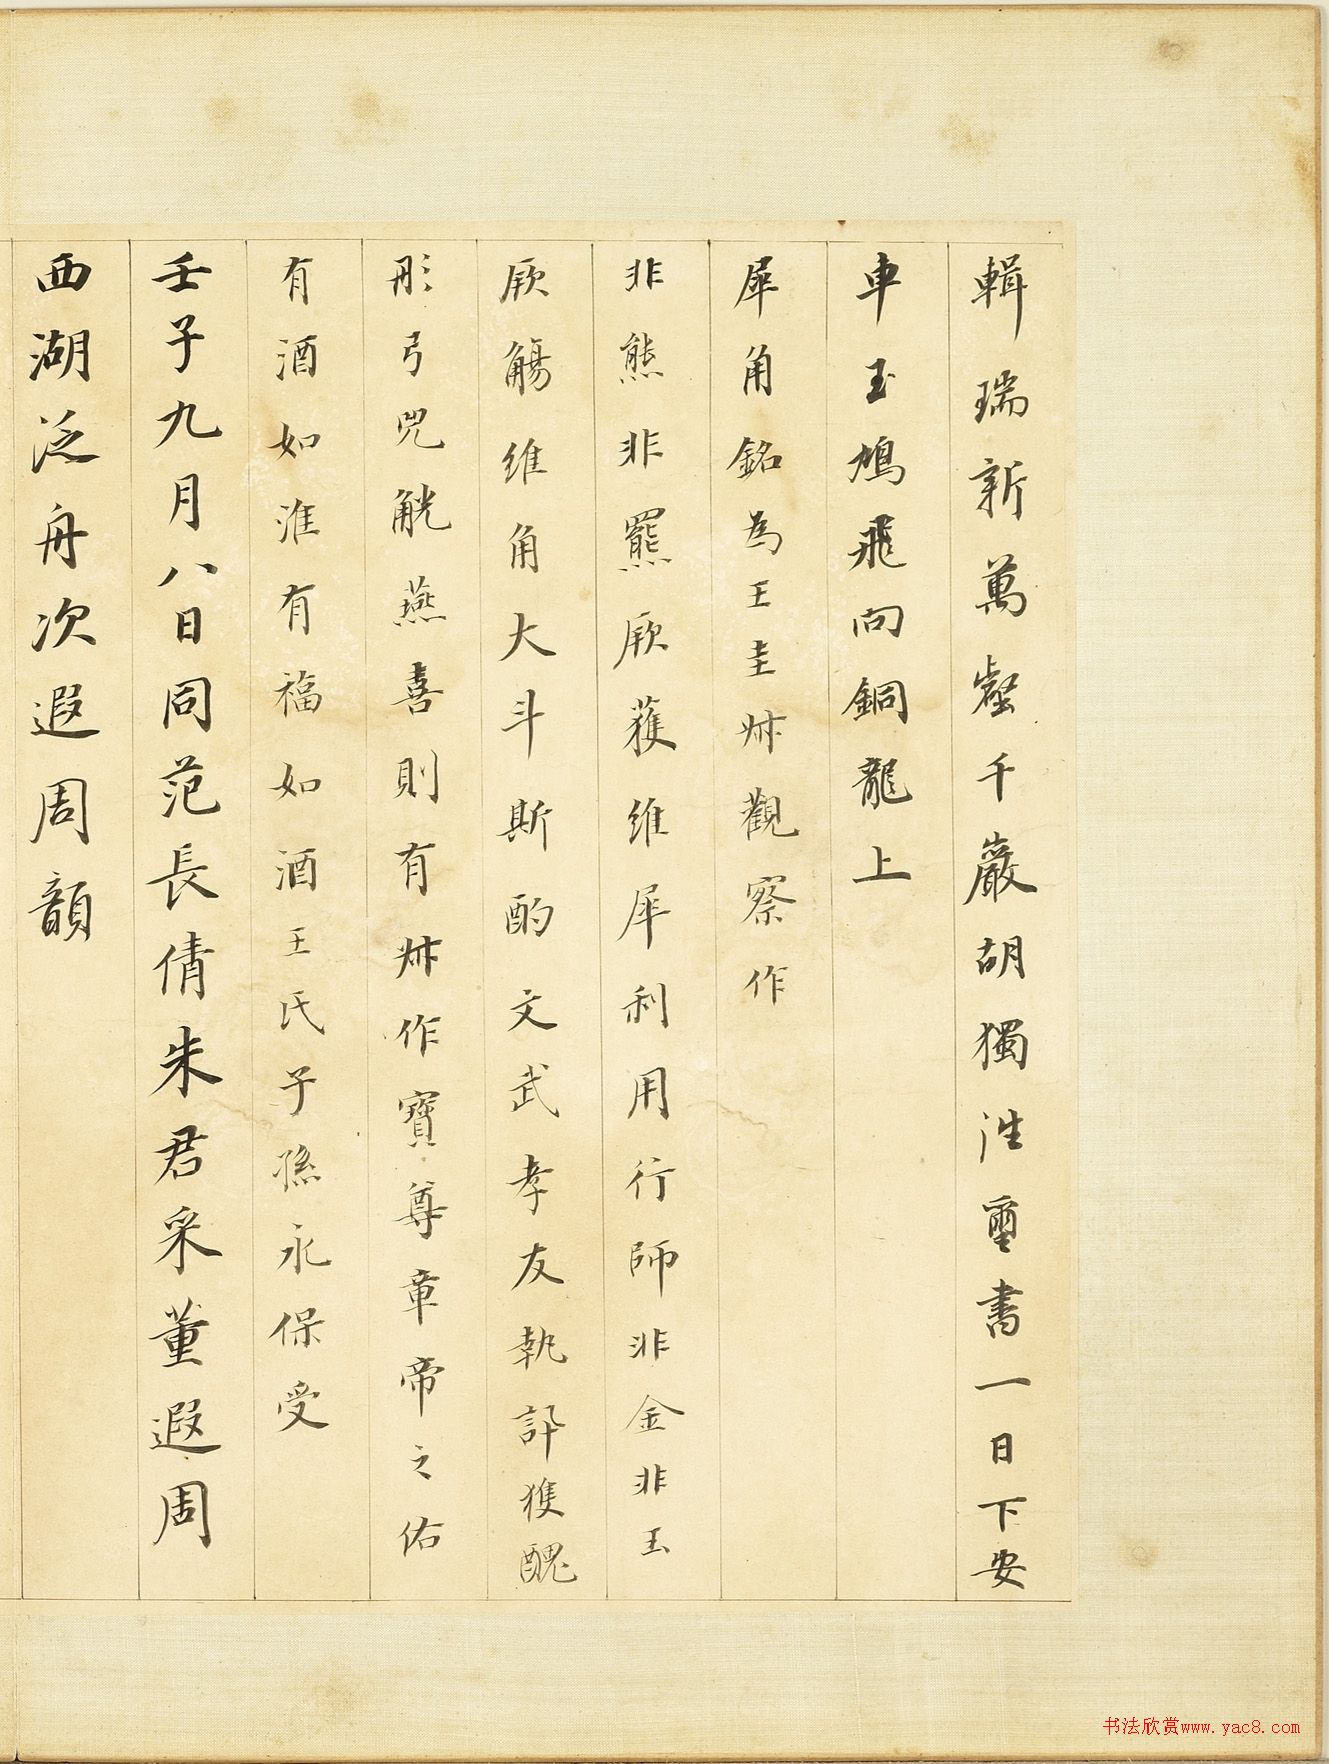 輯瑞新萬壑千巖胡獨泩璽書一日下安
車玉鳩飛向銅龍上
犀角銘為王圭叔觀察作
非熊非羆厥獲維犀利用行師非金非玉
厥觴維角大斗斯酌文武孝友執訊獲醜
彤弓兕觥燕喜則有叔作寶尊章帝之佑
有酒如淮有福如酒王氏子孫永保受
壬子九月八日同范長倩朱君采董遐周
西湖泛舟次遐周韻
书法欣赏www.yac8.com